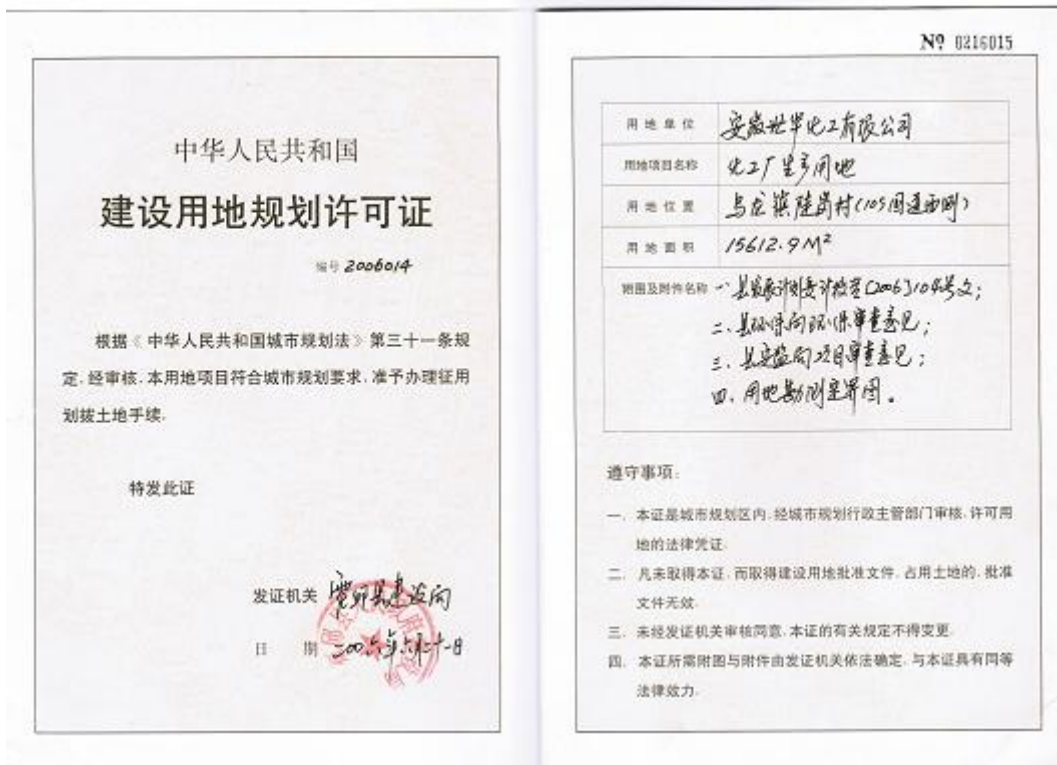 中华人民共和国
建设用地规划许可证
编号 2006014
根据《中华人民共和国城市规划法》第三十一条规
定,经审核,本用地项目符合城市规划要求,准予办理征用
划拨土地手续.
特发此证
发证机关 县建设局
日 期 二00六年六月二十一日
№ 0216015
用地单位 安徽世华化工有限公司
用地项目名称 化工厂生产用地
用地位置 乌龙镇陆岗村(105国道西侧)
用地面积 15612.9M²
附图及附件名称 一、县发展计划委计投字[2006]104号文;
二、县环保局环保审查意见;
三、县安监局项目审查意见;
四、用地勘测定界图。
遵守事项:
一、本证是城市规划区内,经城市规划行政主管部门审核,许可用
地的法律凭证.
二、凡未取得本证,而取得建设用地批准文件、占用土地的,批准
文件无效.
三、未经发证机关审核同意,本证的有关规定不得变更.
四、本证所需附图与附件由发证机关依法确定,与本证具有同等
法律效力.